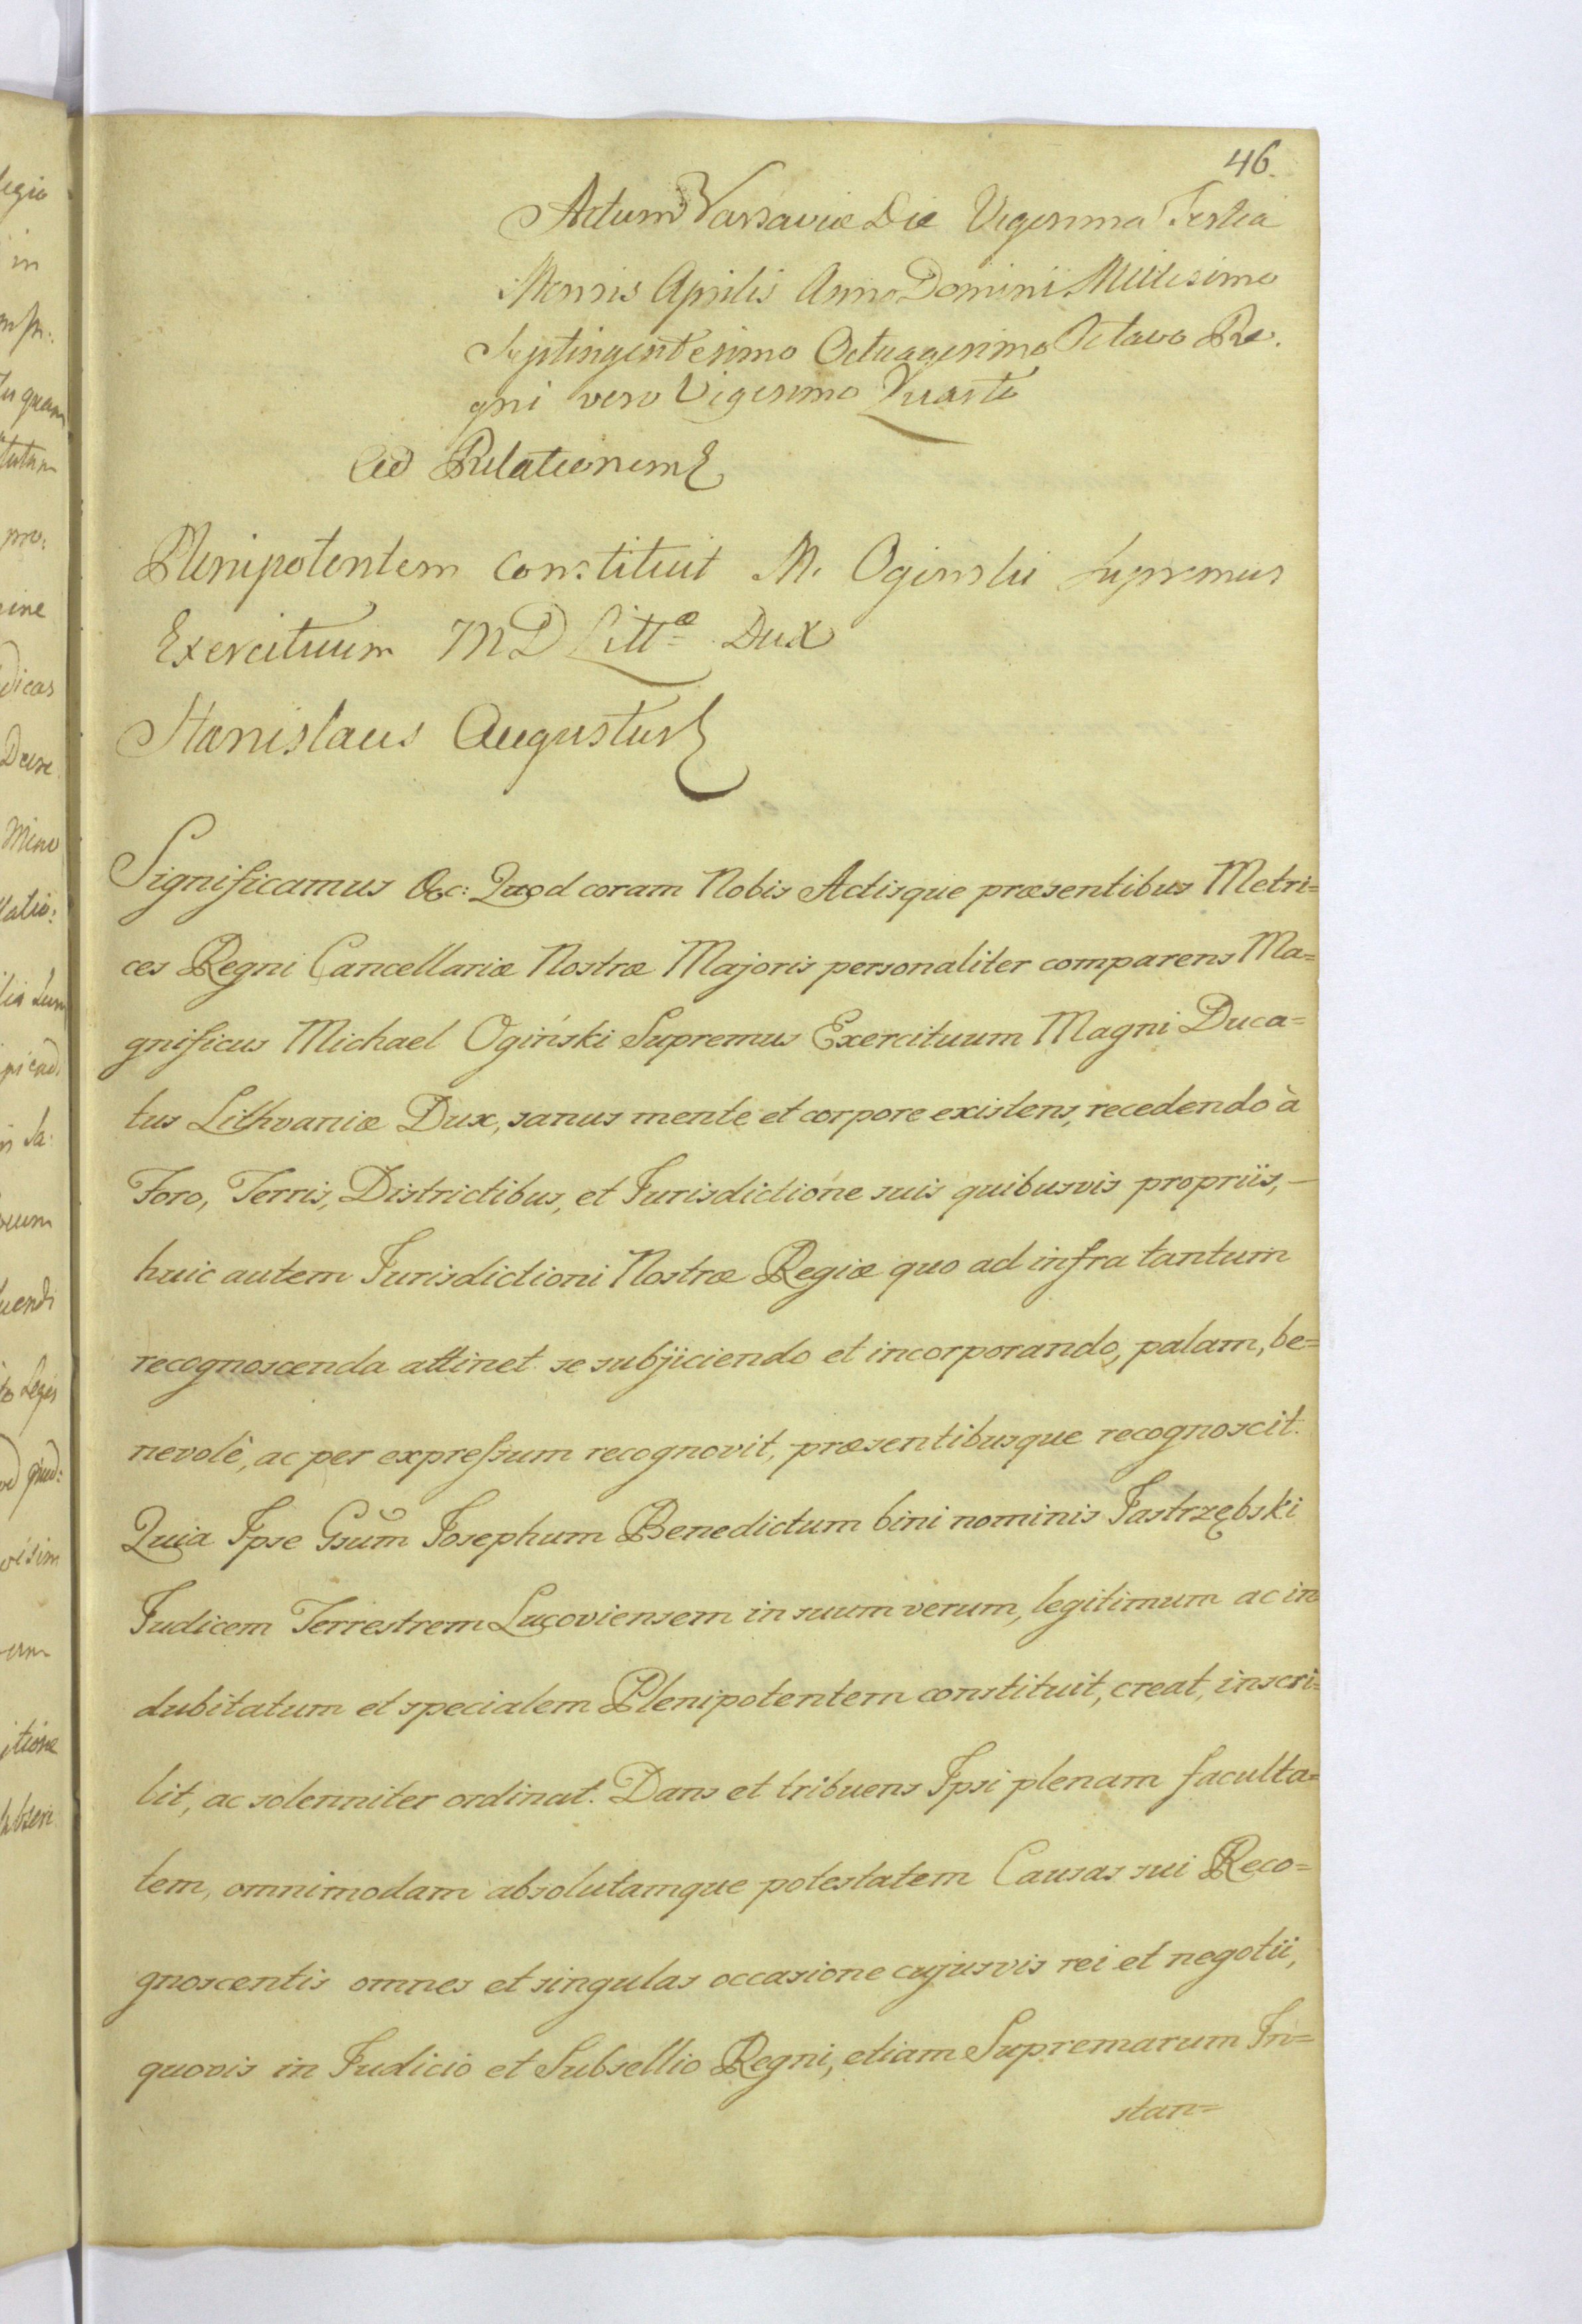 46.
Actum Varsaviæ Die Vigesima Tertia
Mensis Aprilis Anno Domini Millesimo
Septingentesimo Octuagesimo Octavo Re.
gni vero Vigesimo Quarto
Ad Relationem
Plenipotentem Constituit M. Oginski Supremus
Exercituum M D Litt æ Dux
Stanislaus Augustus
Significamus &c: Quod coram Nobis Actisque præsentibus Metri=
ces Regni Cancellariæ Nostræ Majoris personaliter comparens Ma=
gnificus Michael Ogiński Supremus Exercituum Magni Duca=
tus Lithvaniæ Dux, sanus mente et corpore existens, recedendo à
Foro, Terris, Districtibus, et Jurisdictione suis quibusvis propriis, —
huic autem Jurisdictioni Nostræ Regiæ quo ad infra tantum
recognoscenda attinet se subjiciendo et incorporando, palam, be=
nevolè, ac per expreſsum recognovit, præsentibusque recognoscit.
Quia Ipse Gsum Josephum Benedictum bini nominis Jastrzębski
Judicem Terrestrem Lucoviensem in suum verum, legitimum ac in
dubitatum et specialem Plenipotentem constituit, creat, inscri=
bit, ac solenniter ordinat. Dans et tribuens Ipsi plenam faculta=
tem, omnimodam absolutamque potestatem Causas sui Reco=
gnoscentis omnes et singulas occasione cujusvis rei et negotii,
quovis in Judicio et Subsellio Regni, etiam Supremarum In=
stan=